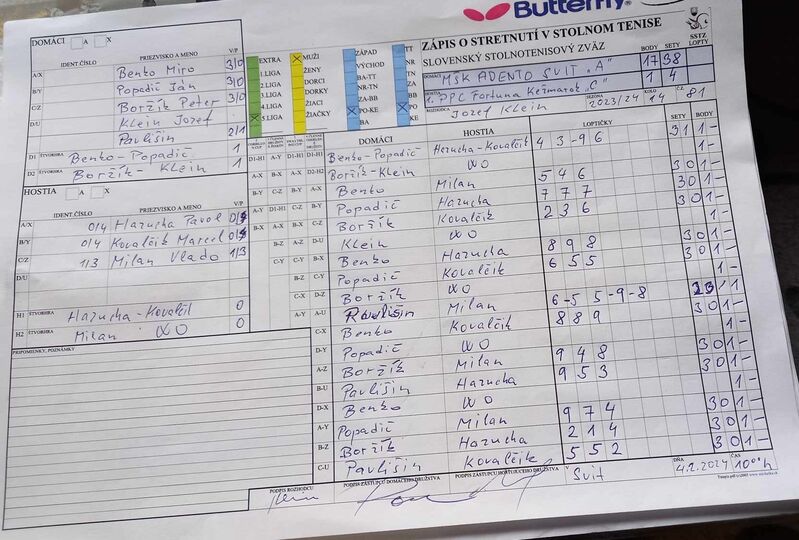 Butterfly
ZÁPIS O STRETNUTÍ V STOLNOM TENISE
SLOVENSKÝ STOLNOTENISOVÝ ZVÄZ
SSTZ
BODY SETY LOPTY
DOMÁCI MŠK ADENTO SVIT "A" 17 38
HOSTIA 1. PPC Fortuna Kežmarok "C" 1 4
ROZHODCA Jozef Klein SEZÓNA 2023/24 KOLO 14 Č.Z. 81
DOMÁCI A X
IDENT.ČÍSLO PRIEZVISKO A MENO V/P
A/X Benko Miro 3/0
B/Y Popadič Jan 3/0
C/Z Boržík Peter 3/0
D/U Klein Jozef
Pavlišin 2/1
D1 ŠTVORHRA Benko-Popadič 1
D2 ŠTVORHRA Boržík-Klein 1
HOSTIA A X
IDENT.ČÍSLO PRIEZVISKO A MENO V/P
A/X 0/4 Hazucha Pavol
B/Y 0/4 Kovalčik Marcel
C/Z 1/3 Milan Vlado 1/3
D/U
H1 ŠTVORHRA Hazucha-Kovalčik 0
H2 ŠTVORHRA Milan WO 0
PRIPOMIENKY, POZNÁMKY
EXTRA
1.LIGA
2.LIGA
3.LIGA
4.LIGA
5.LIGA
MUŽI
ŽENY
DORCI
DORKY
ŽIACI
ŽIAČKY
ZÁPAD
VÝCHOD
BA-TT
NR-TN
ZA-BB
PO-KE
BA
TT
NR
TN
ZA
BB
PO
KE
DOMÁCI HOSTIA LOPTIČKY SETY BODY
D1-H1 Benko-Popadič Hazucha-Kovalčik 4 3 -9 6 3 1 1 -
D2-H2 Boržík-Klein WO 1 -
A-X Benko Milan 5 4 6 3 0 1 -
B-Y Popadič Hazucha 7 7 7 3 0 1 -
C-Z Boržík Kovalčik 2 3 6 3 0 1 -
D-U Klein WO 1 -
B-X Benko Hazucha 8 9 8 3 0 1 -
C-Y Popadič Kovalčik 6 5 5 3 0 1 -
D-Z Boržík WO 1 -
A-U Pavlišin Milan 6 -5 5 -9 -8
C-X Benko Kovalčik 8 8 9 3 0 1 -
D-Y Popadič WO 1 -
A-Z Boržík Milan 9 4 8 3 0 1 -
B-U Pavlišin Hazucha 9 5 3 3 0 1 -
D-X Benko WO 1 -
A-Y Popadič Milan 9 7 4 3 0 1 -
B-Z Boržík Hazucha 2 1 4 3 0 1 -
C-U Pavlišin Kovalčik 5 5 2 3 0 1 -
PODPIS ROZHODCU PODPIS ZÁSTUPCU DOMÁCEHO DRUŽSTVA PODPIS ZÁSTUPCU HOSŤUJÚCEHO DRUŽSTVA V Svit DŇA 4.2.2024 ČAS 10 00 h